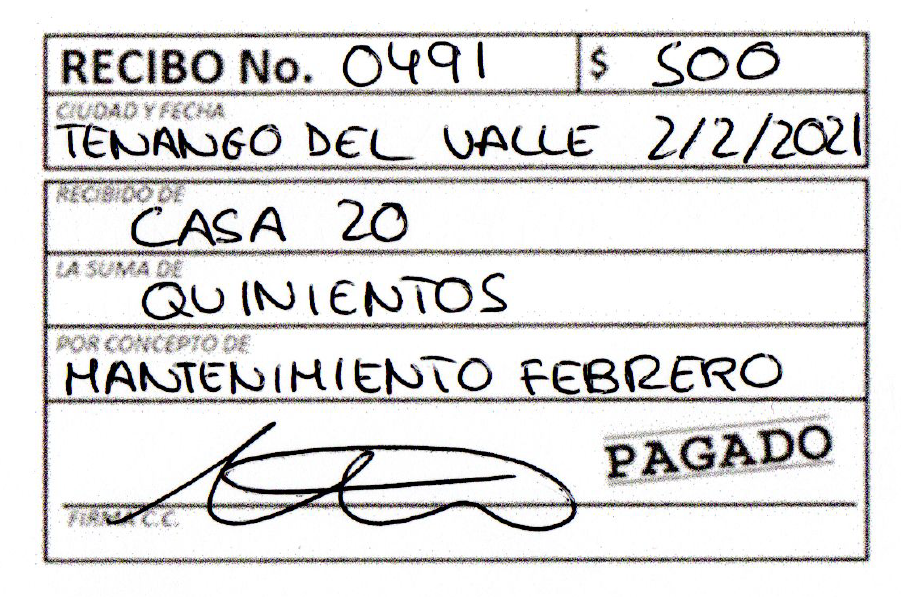 RECIBO No. 0491 $ 500
CIUDAD Y FECHA
TENANGO DEL VALLE 2/2/2021
RECIBIDO DE
CASA 20
LA SUMA DE
QUINIENTOS
POR CONCEPTO DE
MANTENIMIENTO FEBRERO
PAGADO
FIRMA C.C.